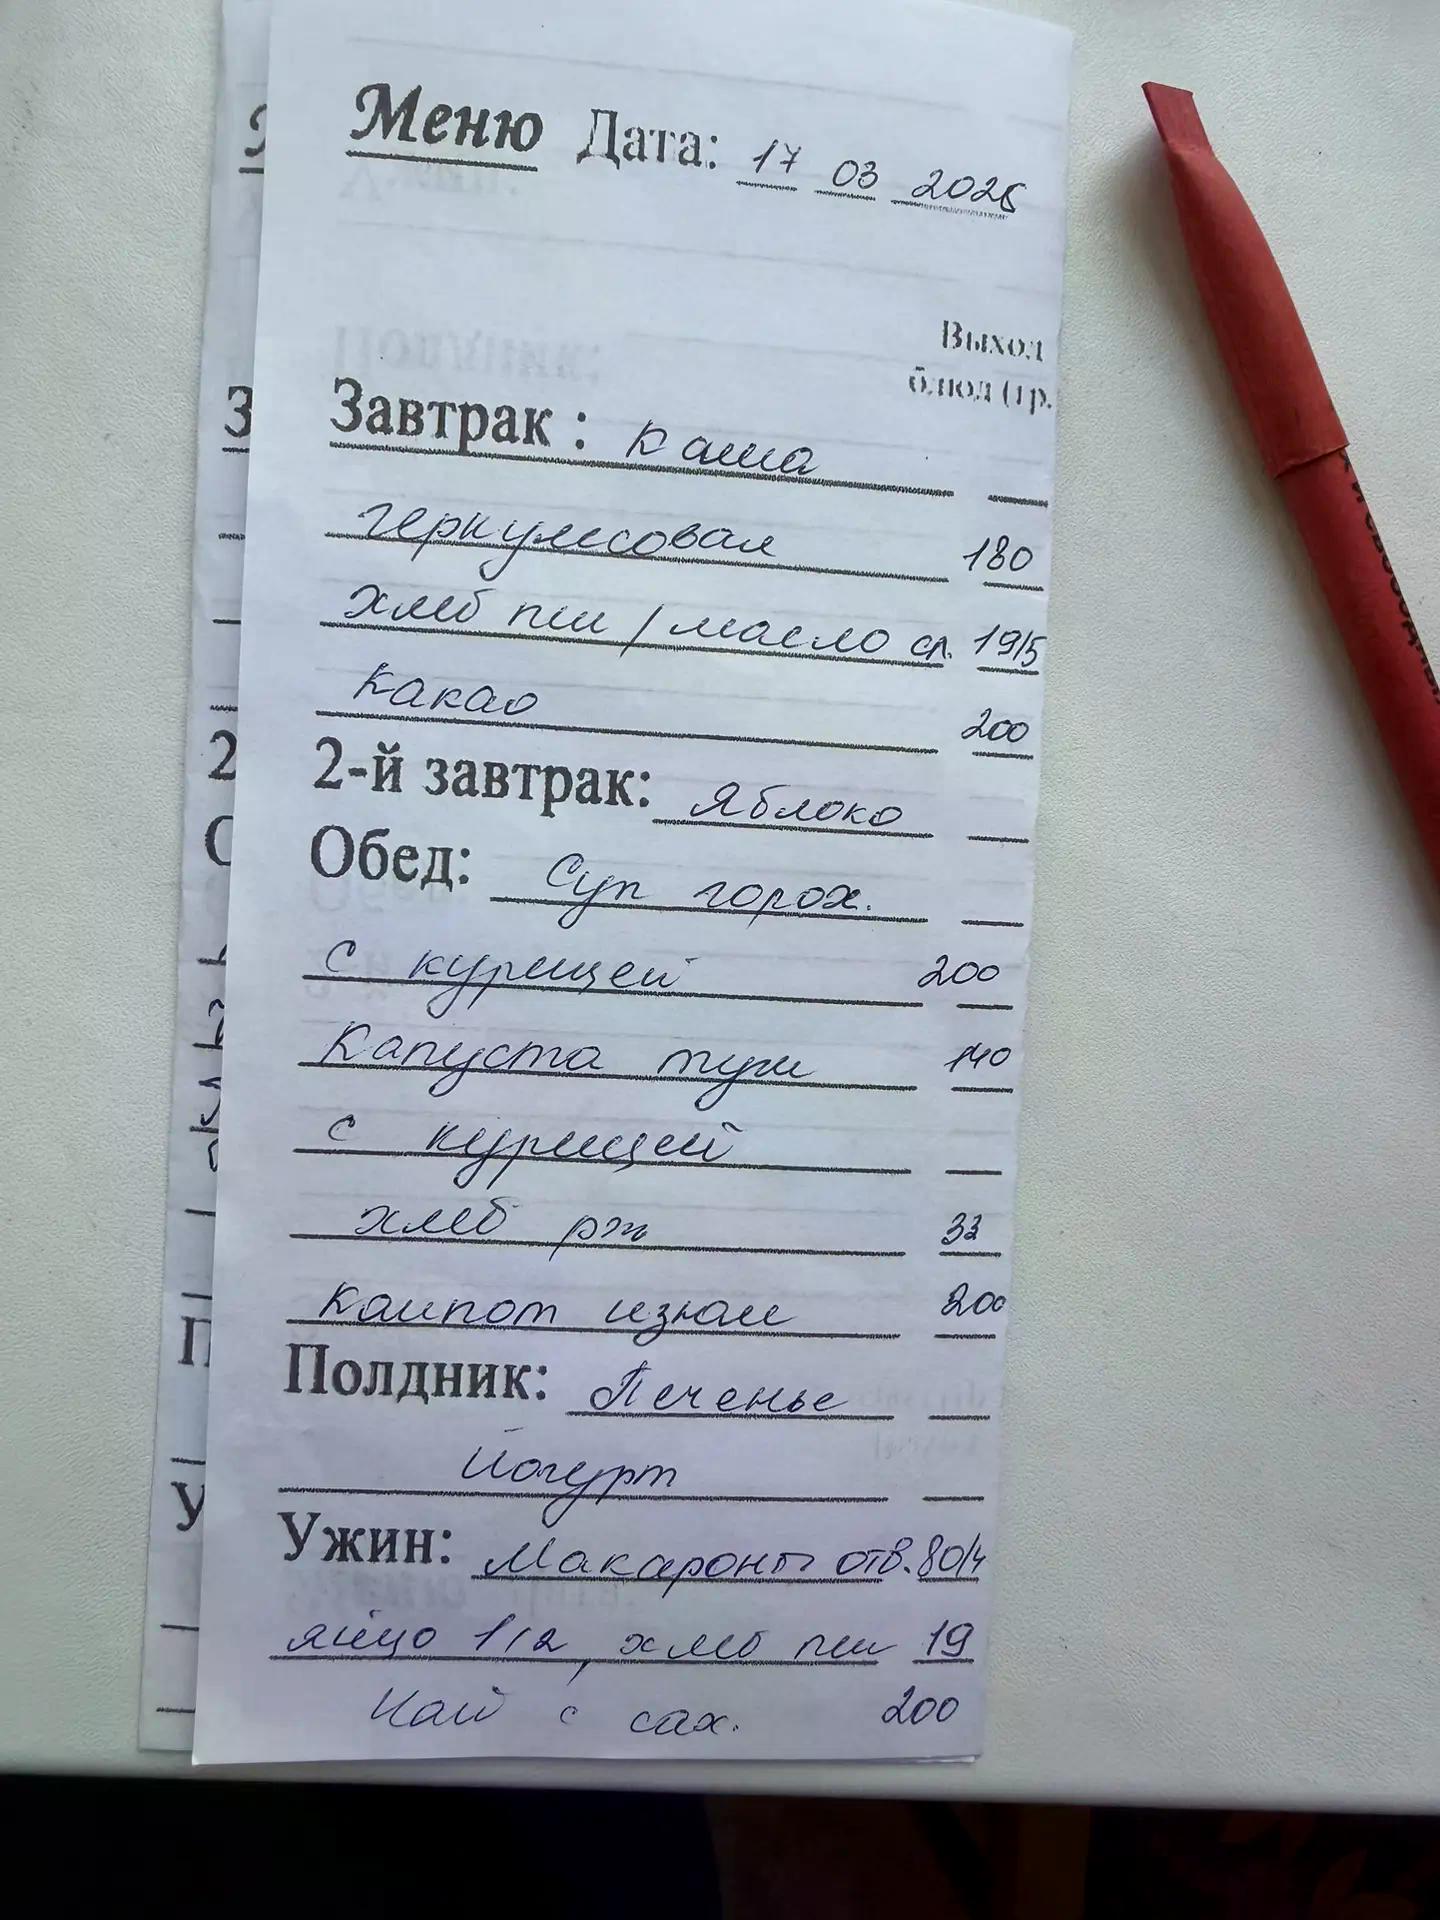 Меню Дата: 17 03 2026
Выход
блюд (гр.
Завтрак : каша
геркулесовая 180
хлеб пш / масло сл. 19/5
какао 200
2-й завтрак: Яблоко
Обед: Суп горох.
с курицей 200
Капуста туш 140
с курицей
хлеб рж 33
компот изюм 200
Полдник: Печенье
йогурт
Ужин: Макароны отв. 80/4
яйцо 1/2, хлеб пш 19
Чай с сах. 200